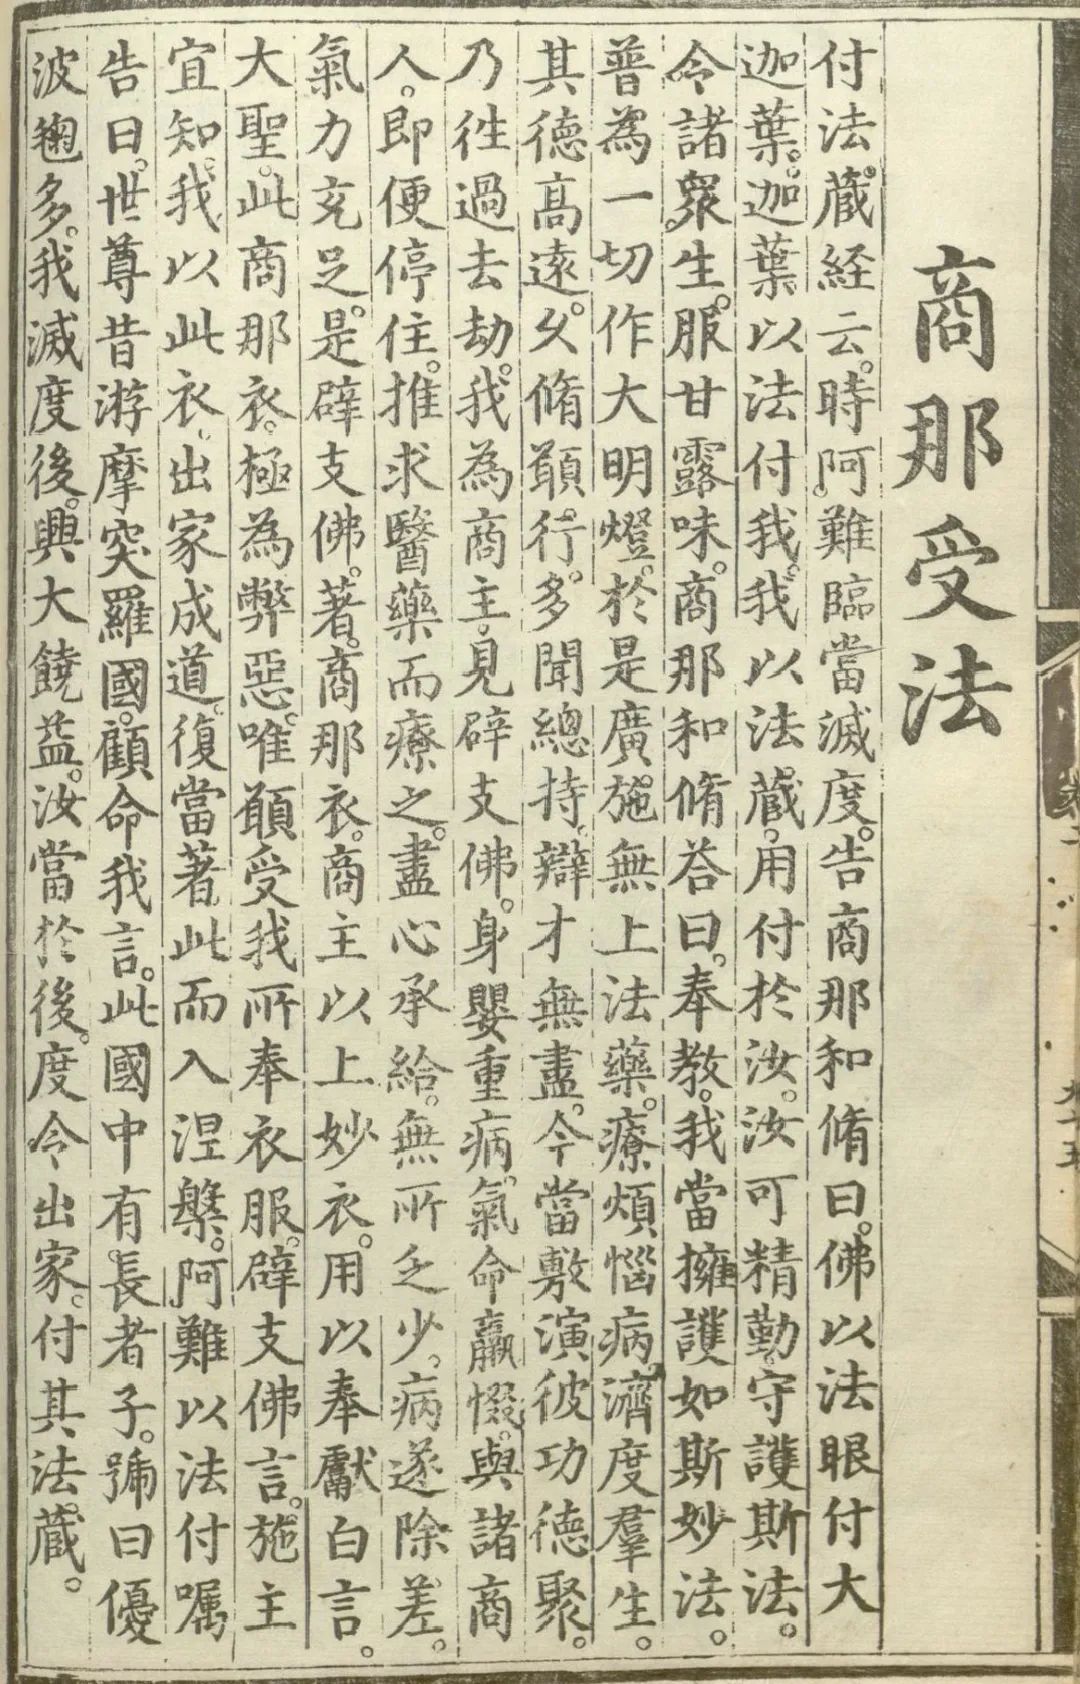 商那受法
付法藏経云。時阿難臨當滅度。告商那和脩曰。佛以法眼付大
迦葉。迦葉以法付我。我以法藏。用付於汝。汝可精勤。守護斯法。
令諸衆生。服甘露味。商那和脩荅曰。奉教。我當擁護如斯妙法。
普為一切作大明燈。於是廣施無上法藥。療煩惱病。濟度羣生。
其德高遠。久脩願行。多聞總持。辯才無盡。今當敷演彼功德聚。
乃徃過去劫。我為商主。見辟支佛。身嬰重病。氣命羸惙。與諸商
人。即便停住。推求醫藥而療之。盡心承給。無所乏少。病遂除差。
氣力充足。是辟支佛。著商那衣。商主以上妙衣。用以奉獻。白言。
大聖。此商那衣。極為弊惡。唯願受我所奉衣服。辟支佛言。施主
宜知。我以此衣。出家成道。復當著此而入涅槃。阿難以法付嘱
告曰。世尊昔游摩突羅國。顧命我言。此國中有長者子。號曰優
波毱多。我滅度後。興大饒益。汝當於後。度令出家。付其法藏。
卷二
九十五